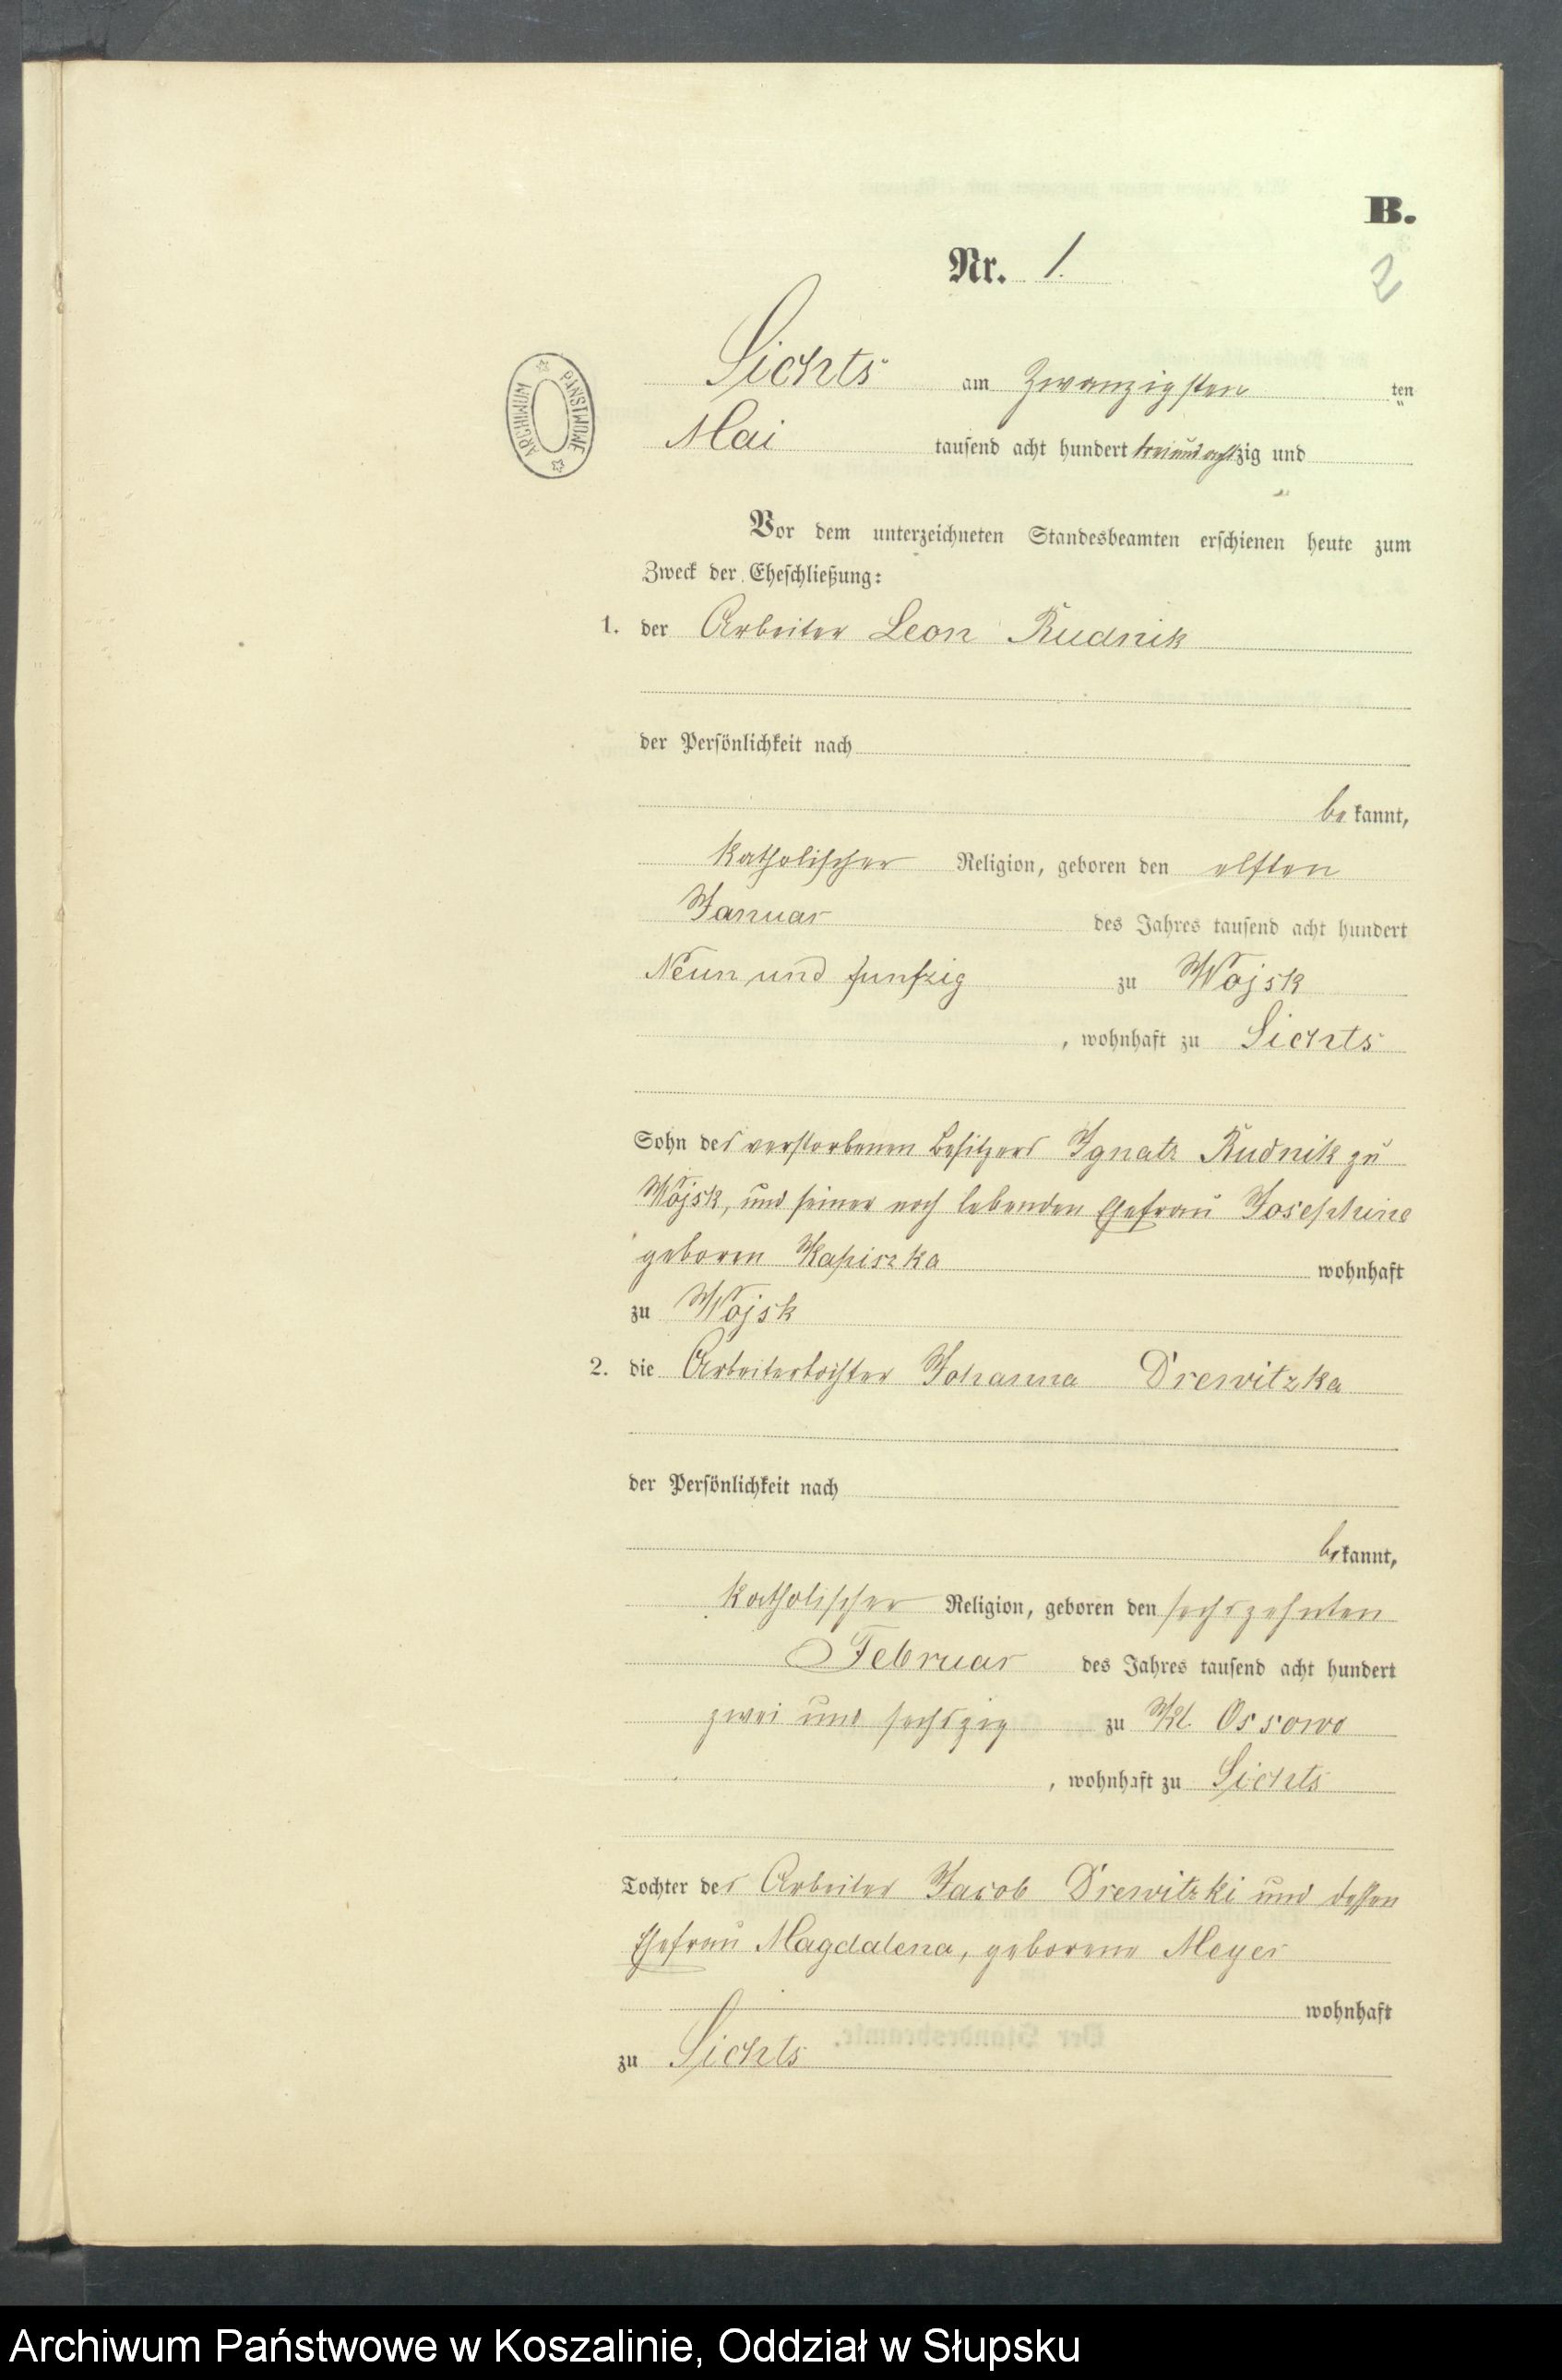 B.
Nr. 1.
2
ARCHIWUM PAŃSTWOWE
Sichts am Zwanzigsten ten
Mai tausend acht hundert dreiundachtzig und
Vor dem unterzeichneten Standesbeamten erschienen heute zum
Zweck der Eheschließung:
1. der Arbeiter Leon Rudnik
der Persönlichkeit nach
be kannt,
katholischer Religion, geboren den elften
Januar des Jahres tausend acht hundert
Neun und funfzig zu Wojsk
, wohnhaft zu Sichts
Sohn des verstorbenen Besitzers Ignatz Rudnik zu
Wojsk, und seiner noch lebenden Ehefrau Josephine
geboren Kapiszka wohnhaft
zu Wojsk
2. die Arbeitertochter Johanna Drewitzka
der Persönlichkeit nach
be kannt,
katholischer Religion, geboren den sechszehnten
Februar des Jahres tausend acht hundert
zwei und sechszig zu Kl. Ossowo
, wohnhaft zu Sichts
Tochter des Arbeiter Jacob Drewitzki und dessen
Ehefrau Magdalena, geborene Meyer
wohnhaft
zu Sichts
Archiwum Państwowe w Koszalinie, Oddział w Słupsku